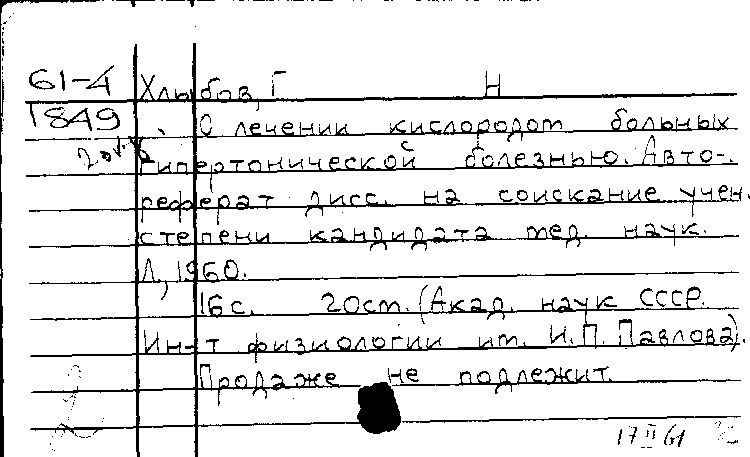 61-4 Хлыбов, Г Н
1849 О лечении кислородом больных
гипертонической болезнью. Авто-
реферат дисс. на соискание учен.
степени кандидата мед. наук.
Л, 1960.
16 с. 20 см. (Акад. наук СССР.
Ин-т физиологии им. И.П. Павлова).
Продаже не подлежит.
2
17 II 61